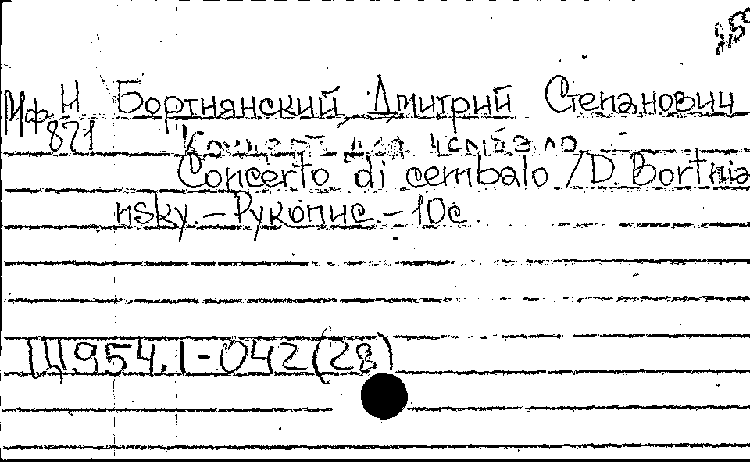 Мф. Н Бортнянский Дмитрий Степанович
821 Концерт для чембало
Concerto di cembalo / D. Bortnia
nsky. – Рукопис. – 10с.
Щ954.1-042(28)